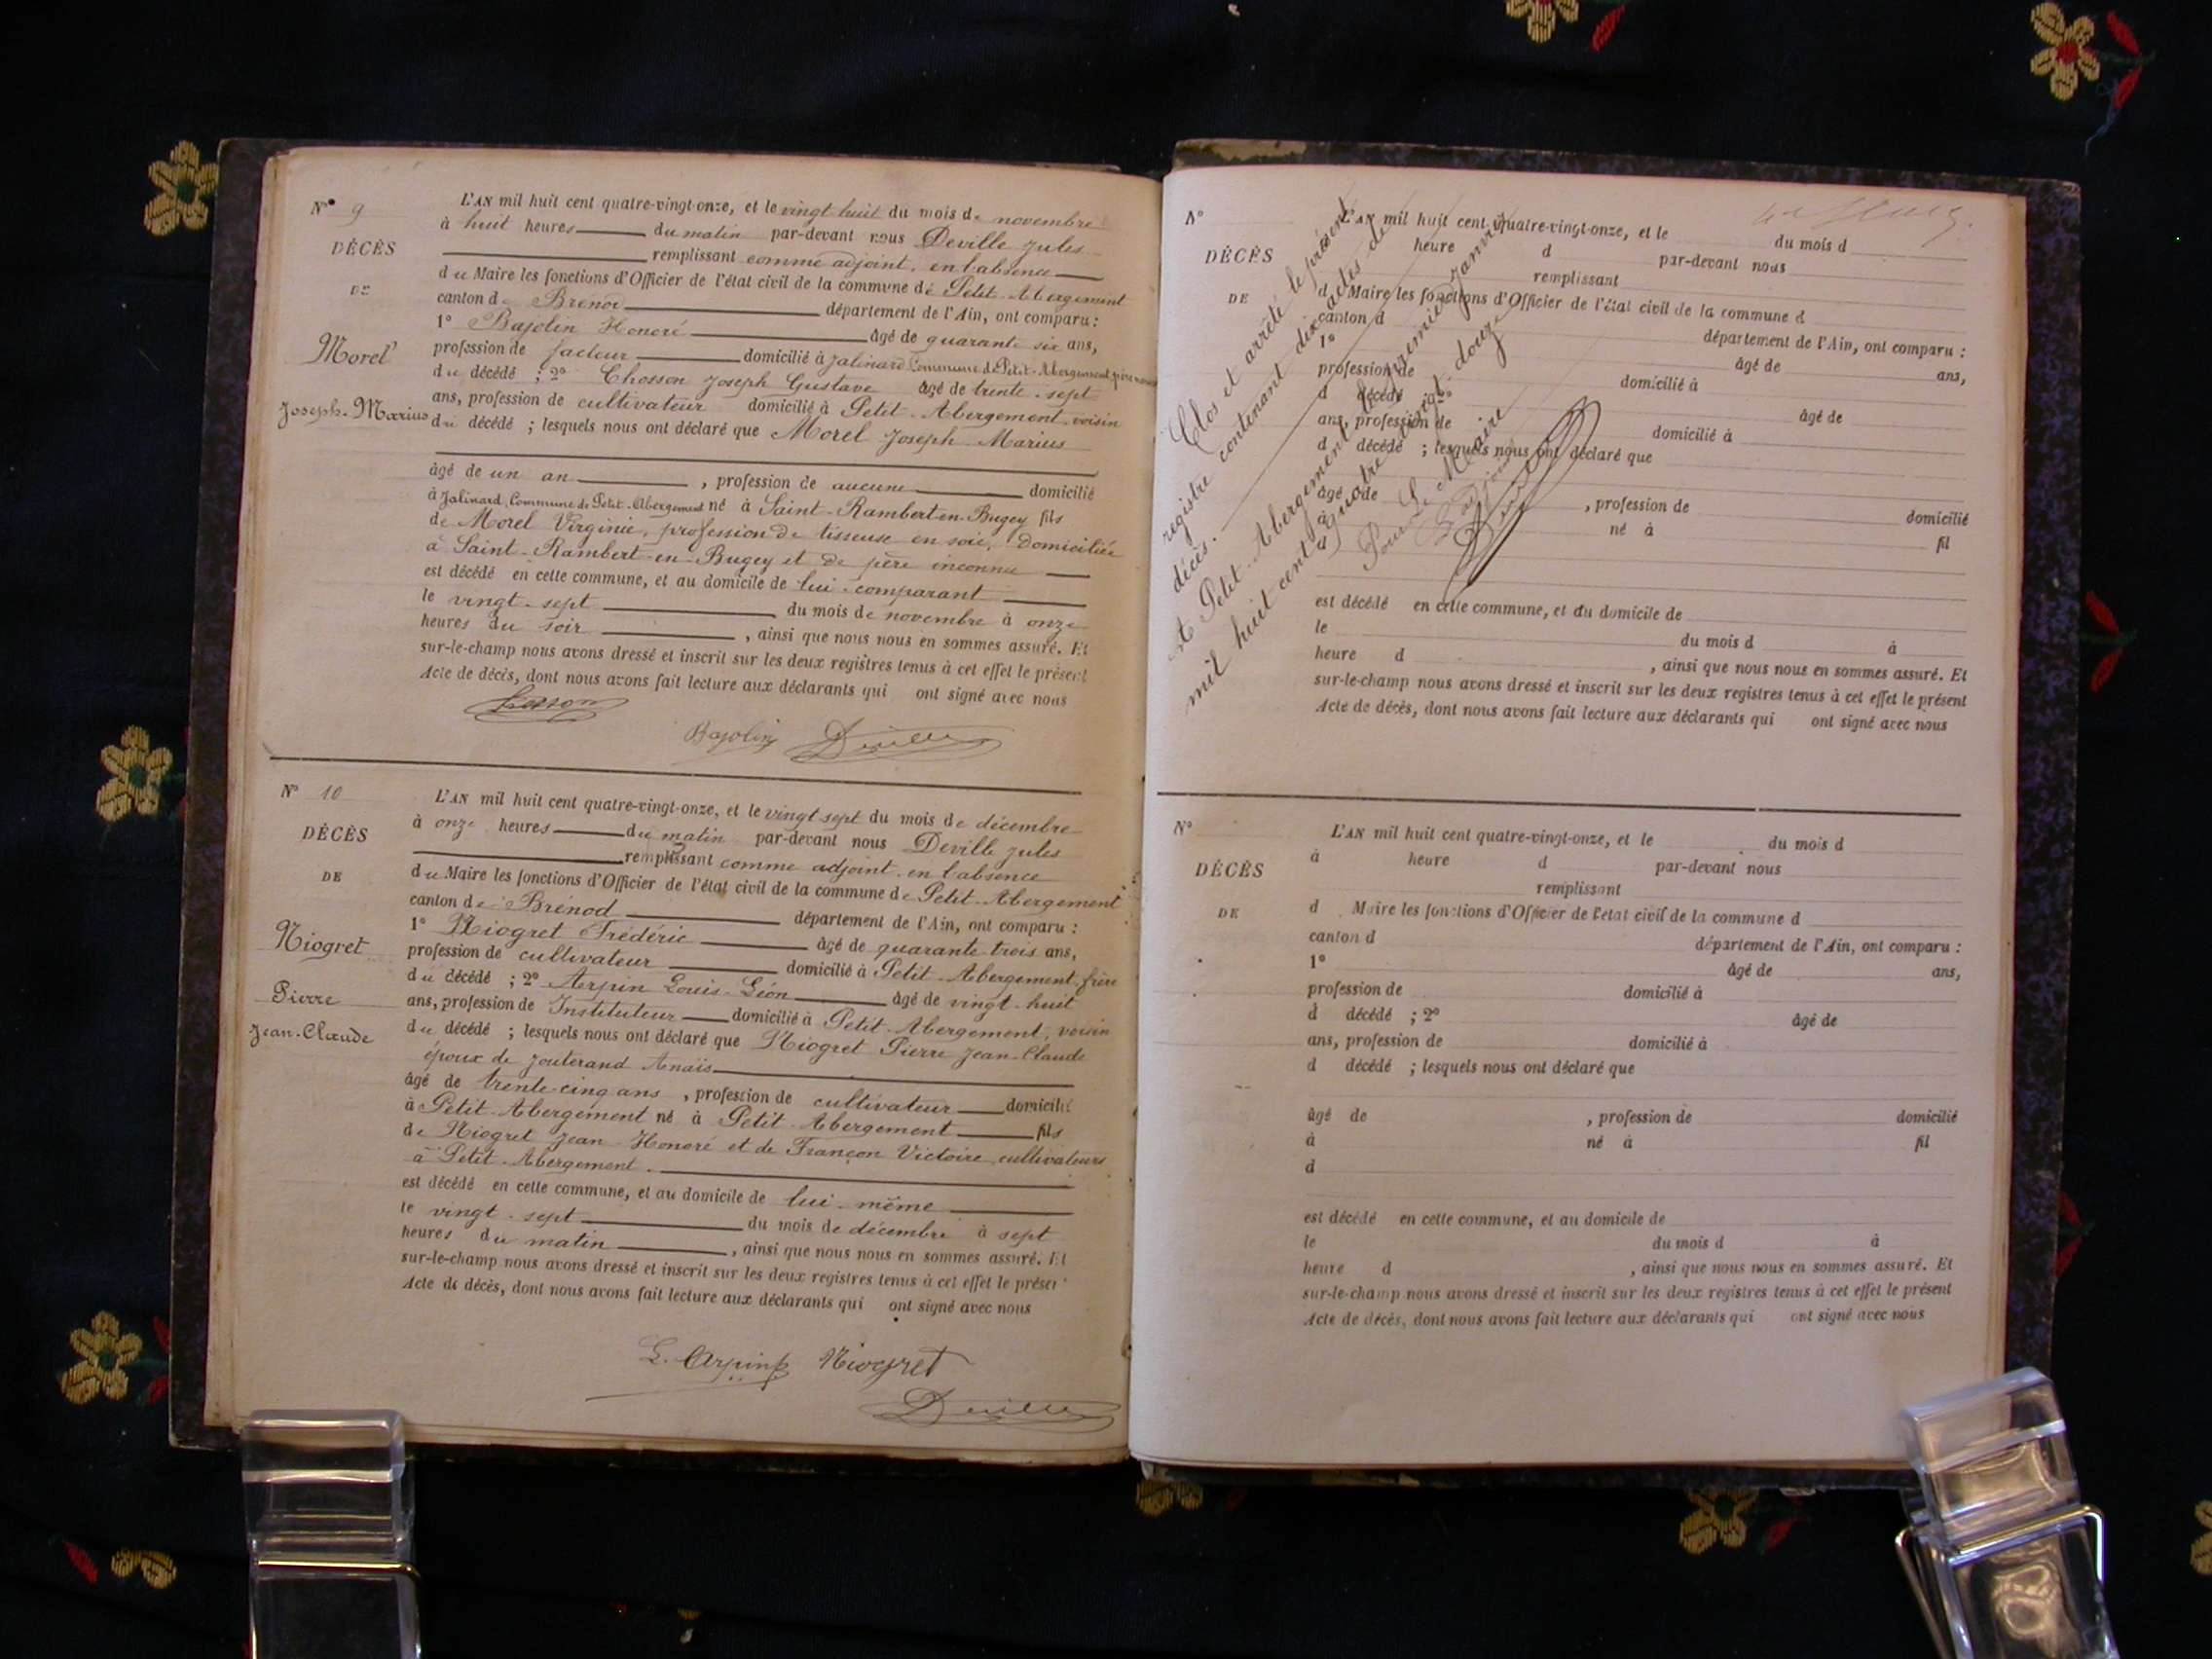 N° 9
DÉCÈS
DE
Morel
Joseph-Marius
L'AN mil huit cent quatre-vingt-onze, et le vingt huit du mois de novembre
à huit heures du matin par-devant nous Deville Jules
remplissant comme adjoint, en l'absence
du Maire les fonctions d'Officier de l'état civil de la commune de Petit-Abergement
canton de Brénod département de l'Ain, ont comparu :
1° Bajolin Honoré âgé de quarante six ans,
profession de facteur domicilié à Jalinard Commune de Petit-Abergement
du décédé ; 2° Chosson Joseph Gustave âgé de trente-sept
ans, profession de cultivateur domicilié à Petit-Abergement, voisin
du décédé ; lesquels nous ont déclaré que Morel Joseph Marius
âgé de un an , profession de aucune domicilié
à Jalinard, Commune de Petit-Abergement né à Saint-Rambert-en-Bugey fils
de Morel Virginie, profession de tisseuse en soie, domiciliée
à Saint-Rambert-en-Bugey et de père inconnu
est décédé en cette commune, et au domicile de lui-comparant
le vingt-sept du mois de novembre à onze
heures du soir , ainsi que nous nous en sommes assuré. Et
sur-le-champ nous avons dressé et inscrit sur les deux registres tenus à cet effet le présent
Acte de décès, dont nous avons fait lecture aux déclarants qui ont signé avec nous
Bajolin Deville
N° 10
DÉCÈS
DE
Niogret
Pierre
Jean-Claude
L'AN mil huit cent quatre-vingt-onze, et le vingt sept du mois de décembre
à onze heures du matin par-devant nous Deville Jules
remplissant comme adjoint, en l'absence
du Maire les fonctions d'Officier de l'état civil de la commune de Petit-Abergement
canton de Brénod département de l'Ain, ont comparu :
1° Niogret Frédéric âgé de quarante trois ans,
profession de cultivateur domicilié à Petit-Abergement, frère
du décédé ; 2° Arpin Louis-Léon âgé de vingt-huit
ans, profession de Instituteur domicilié à Petit-Abergement, voisin
du décédé ; lesquels nous ont déclaré que Niogret Pierre Jean-Claude
époux de Jouterand Anaïs
âgé de trente-cinq ans , profession de cultivateur domicilié
à Petit-Abergement né à Petit-Abergement fils
de Niogret Jean-Honoré et de Françon Victoire, cultivateurs
à Petit-Abergement.
est décédé en cette commune, et au domicile de lui-même
le vingt-sept du mois de décembre à sept
heures du matin , ainsi que nous nous en sommes assuré. Et
sur-le-champ nous avons dressé et inscrit sur les deux registres tenus à cet effet le présent
Acte de décès, dont nous avons fait lecture aux déclarants qui ont signé avec nous
L. Arpin Niogret
Deville
N°
DÉCÈS
DE
L'AN mil huit cent quatre-vingt-onze, et le du mois d
heure d par-devant nous
remplissant
d Maire les fonctions d'Officier de l'état civil de la commune d
canton d département de l'Ain, ont comparu :
1° âgé de ans,
profession de domicilié à
d décédé ; 2° âgé de
ans, profession de domicilié à
d décédé ; lesquels nous ont déclaré que
âgé de , profession de domicilié
à né à fil
est décédé en cette commune, et au domicile de
le du mois d à
heure d , ainsi que nous nous en sommes assuré. Et
sur-le-champ nous avons dressé et inscrit sur les deux registres tenus à cet effet le présent
Acte de décès, dont nous avons fait lecture aux déclarants qui ont signé avec nous
Clos et arrêté le présent
registre contenant dix actes de
décès.
A Petit-Abergement, le premier Janvier
mil huit cent quatre-vingt-douze
Pour le Maire
L'adjoint
N°
DÉCÈS
DE
L'AN mil huit cent quatre-vingt-onze, et le du mois d
à heure d par-devant nous
remplissant
d Maire les fonctions d'Officier de l'état civil de la commune d
canton d département de l'Ain, ont comparu :
1° âgé de ans,
profession de domicilié à
d décédé ; 2° âgé de
ans, profession de domicilié à
d décédé ; lesquels nous ont déclaré que
âgé de , profession de domicilié
à né à fil
d
est décédé en cette commune, et au domicile de
le du mois d à
heure d , ainsi que nous nous en sommes assuré. Et
sur-le-champ nous avons dressé et inscrit sur les deux registres tenus à cet effet le présent
Acte de décès, dont nous avons fait lecture aux déclarants qui ont signé avec nous